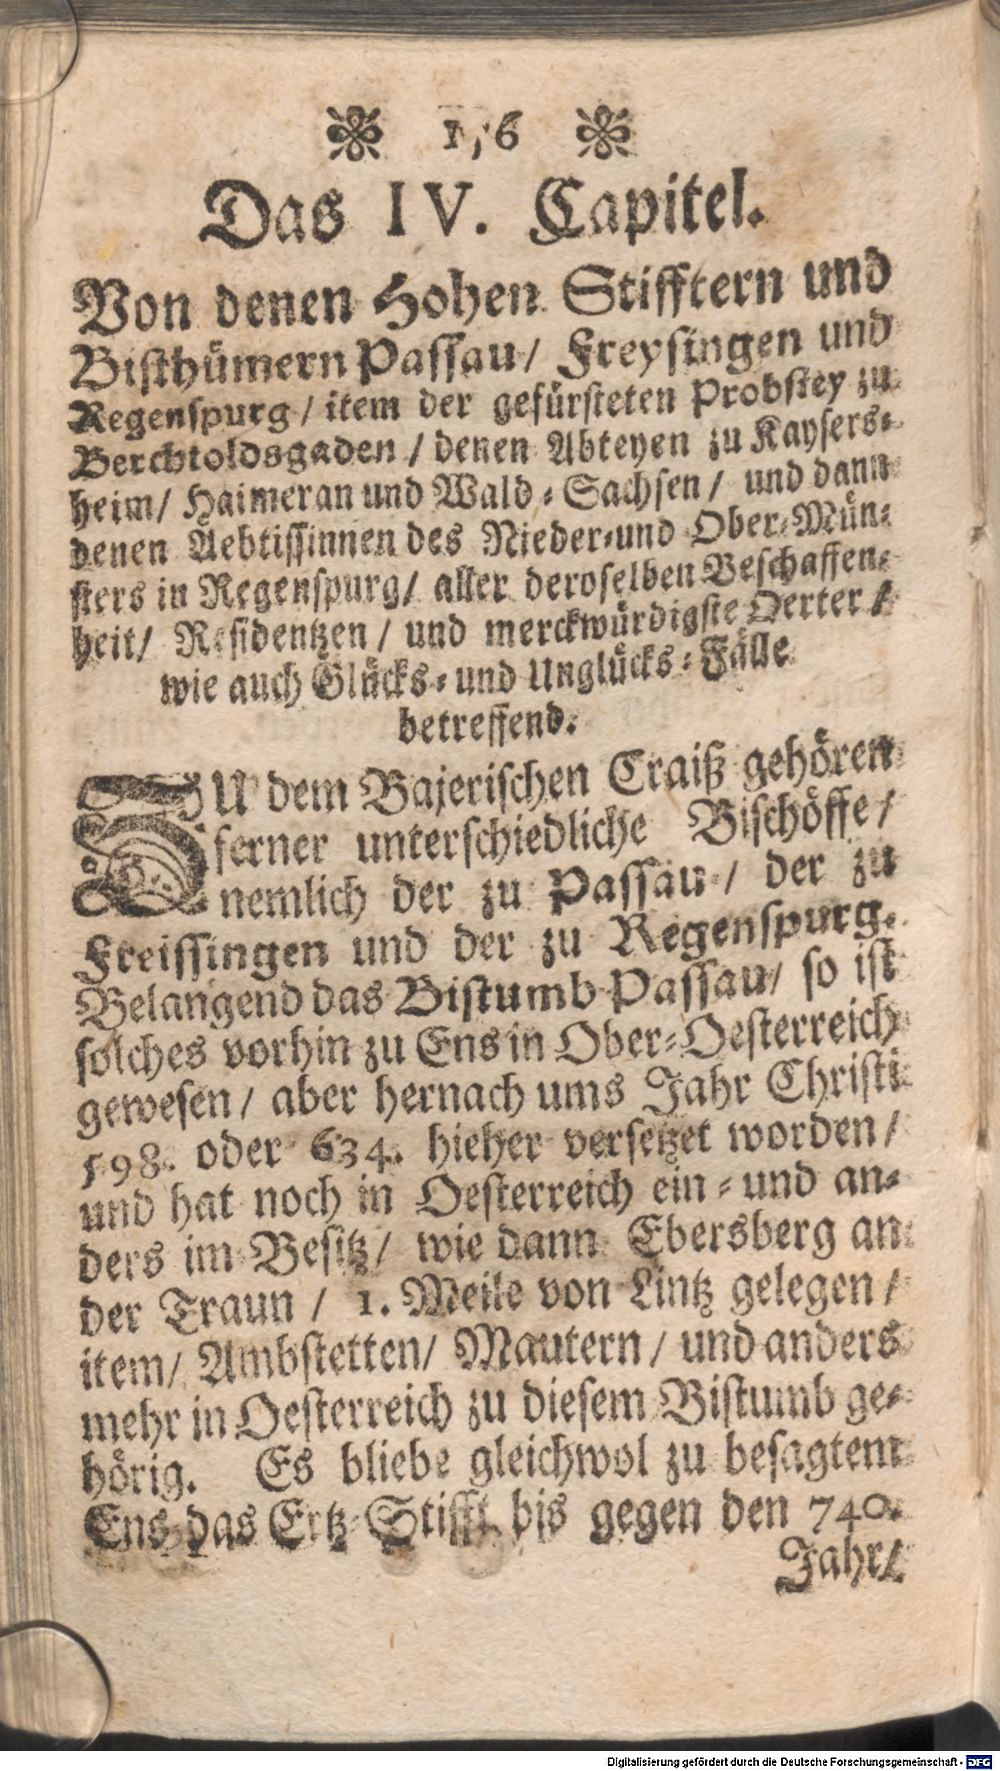 156
Das IV. Capitel.
Von denen Hohen Stifftern und
Bisthümern Passau/ Freysingen und
Regenspurg/ item der gefürsteten Probstey zu
Berchtoldsgaden/ denen Abteyen zu Kaysers-
heim/ Haimeran und Wald-Sachsen/ und dann
denen Äebtissinnen des Nieder-und Ober-Mün-
sters in Regenspurg/ aller deroselben Beschaffen-
heit/ Residentzen/ und merckwürdigste Oerter/
wie auch Glücks-und Unglücks-Fälle
betreffend.
ZU dem Bajerischen Craiß gehören
ferner unterschiedliche Bischöffe/
nemlich der zu Passau/ der zu
Freissingen und der zu Regenspurg.
Belangend das Bistumb Passau/ so ist
solches vorhin zu Ens in Ober-Oesterreich
gewesen/ aber hernach ums Jahr Christi
598. oder 634. hieher versetzet worden/
und hat noch in Oesterreich ein-und an-
ders im Besitz/ wie dann Ebersberg an
der Traun/ 1. Meile von Lintz gelegen/
item/ Ambstetten/ Mautern/ und anders
mehr in Oesterreich zu diesem Bistumb ge-
hörig. Es bliebe gleichwol zu besagtem
Ens das Ertz-Stifft bis gegen den 740.
Jahr/
Digitalisierung gefördert durch die Deutsche Forschungsgemeinschaft - DFG